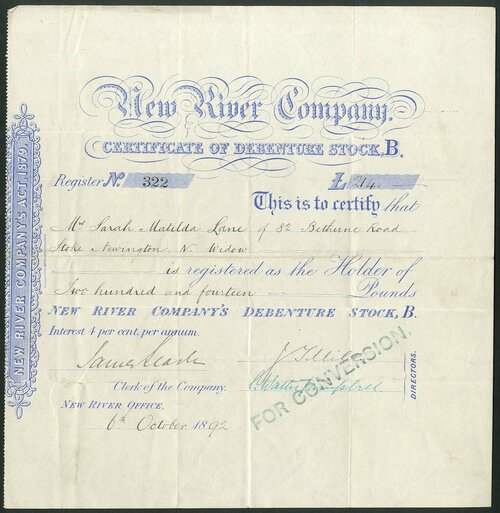 New River Company.
CERTIFICATE OF DEBENTURE STOCK, B.
Register No. 322 £ 214.
This is to certify that
Mrs Sarah Matilda Lane of 82 Bethune Road
Stoke Newington N. Widow
is registered as the Holder of
Two hundred and fourteen Pounds
NEW RIVER COMPANY'S DEBENTURE STOCK, B.
Interest 4 per cent, per annum.
Clerk of the Company.
DIRECTORS.
FOR CONVERSION.
NEW RIVER OFFICE.
6th October 1892
NEW RIVER COMPANY'S ACT, 1879.